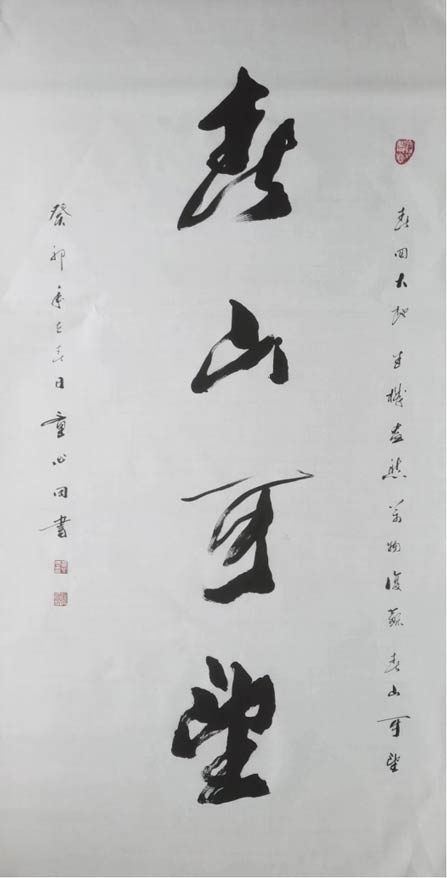 春回大地生機盎然萬物復蘇春山可望
春山可望
癸卯年之春日童心田書